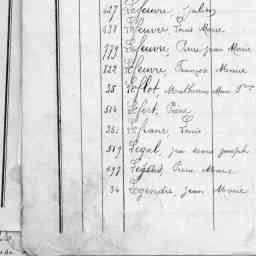 427 Lefeuvre, Julien
438 Lefeuvre, Louis Marie
779 Lefeuvre, Pierre Jean Marie
822 Lefeuvre, François Marie
35 Leflot, Mathurin Marie
514 Lefort, Pierre
381 Lefranc, Louis
519 Legal, Jean Marie Joseph
497 Pierre Marie
34 Legendre, Jean Marie